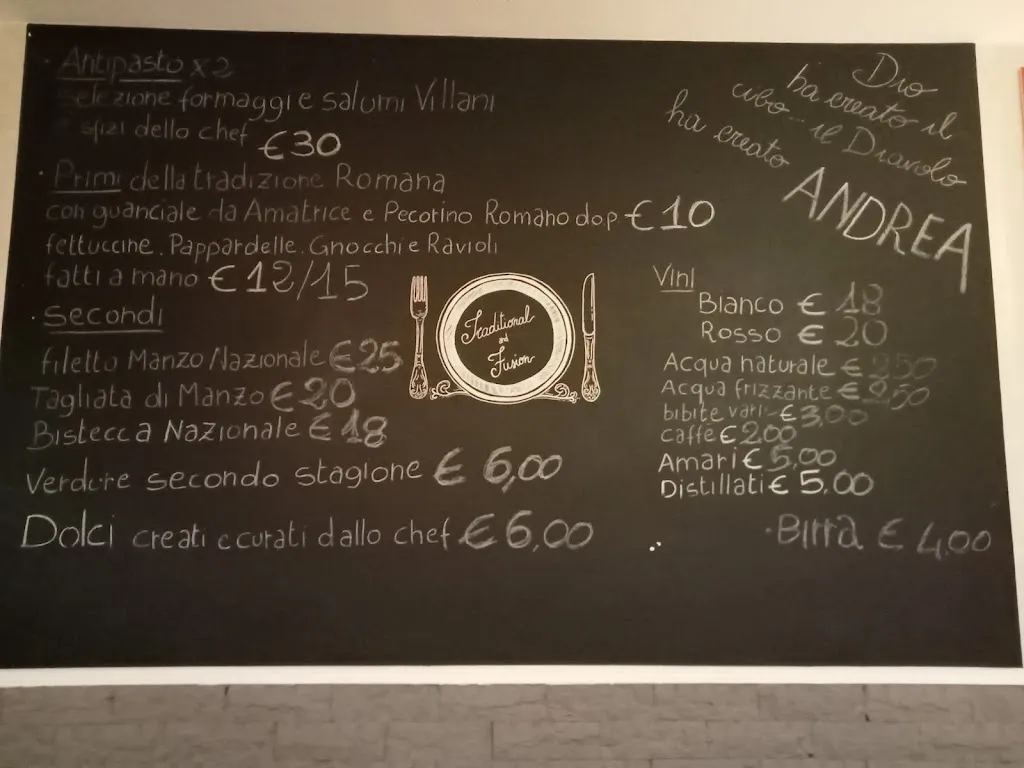 Antipasto x2
selezione formaggi e salumi Villani
sfizi dello chef €30
Primi della tradizione Romana
con guanciale da Amatrice e Pecorino Romano dop €10
fettuccine. Pappardelle. Gnocchi e Ravioli
fatti a mano €12/15
Secondi
filetto Manzo Nazionale €25
Tagliata di Manzo €20
Bistecca Nazionale €18
Verdure secondo stagione € 6,00
Dolci creati e curati dallo chef €6,00
Traditional
and
Fusion
Dio
ha creato il
cibo... il Diavolo
ha creato
ANDREA
Vini
Bianco € 18
Rosso € 20
Acqua naturale € 2,50
Acqua frizzante € 2,50
bibite varie €3,00
caffè €2,00
Amari €5,00
Distillati € 5,00
Birra € 4,00